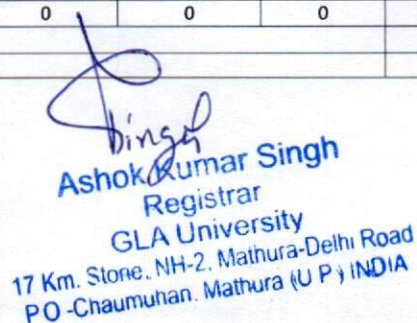 0 0 0
Ashok Kumar Singh
Registrar
GLA University
17 Km. Stone, NH-2, Mathura-Delhi Road
P O -Chaumuhan, Mathura (U P) INDIA